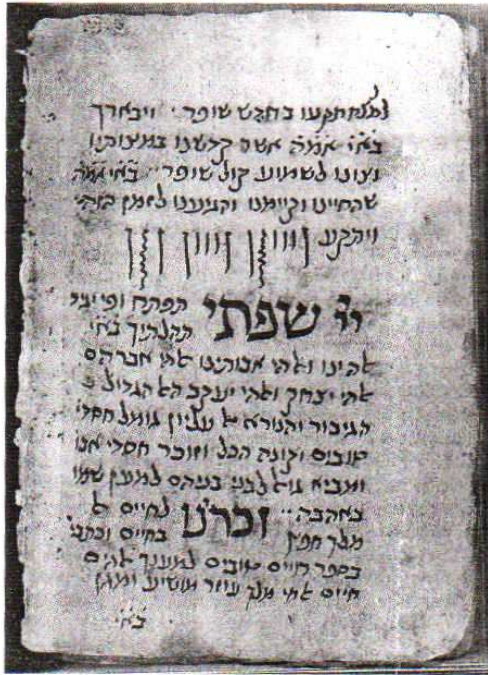 תקעו בחדש שופר ויבארך
בא״י אמ״ה אשר קדשנו במצותיו
וצונו לשמוע קול שופר בא״י אמ״ה
שהחיינו וקיימנו והגיענו לזמן הזה
ויתקע
יי שפתי תפתח ופי יגיד
תהלתיך בא״י
אלהינו ואלהי אבותינו אלהי אברהם
אלהי יצחק ואלהי יעקב האל הגדול
הגיבור והנורא אל עליון גומל חסדי׳
טובים וקונה הכל וזוכר חסדי אבו׳
ומביא גואל לבני בניהם למען שמו
באהבה זכרנו לחיים אל
מלך חפץ בחיים
בספר חיים טובים למענך אלהים
חיים אלהי מלך עוזר מושיע ומגן
בא״י